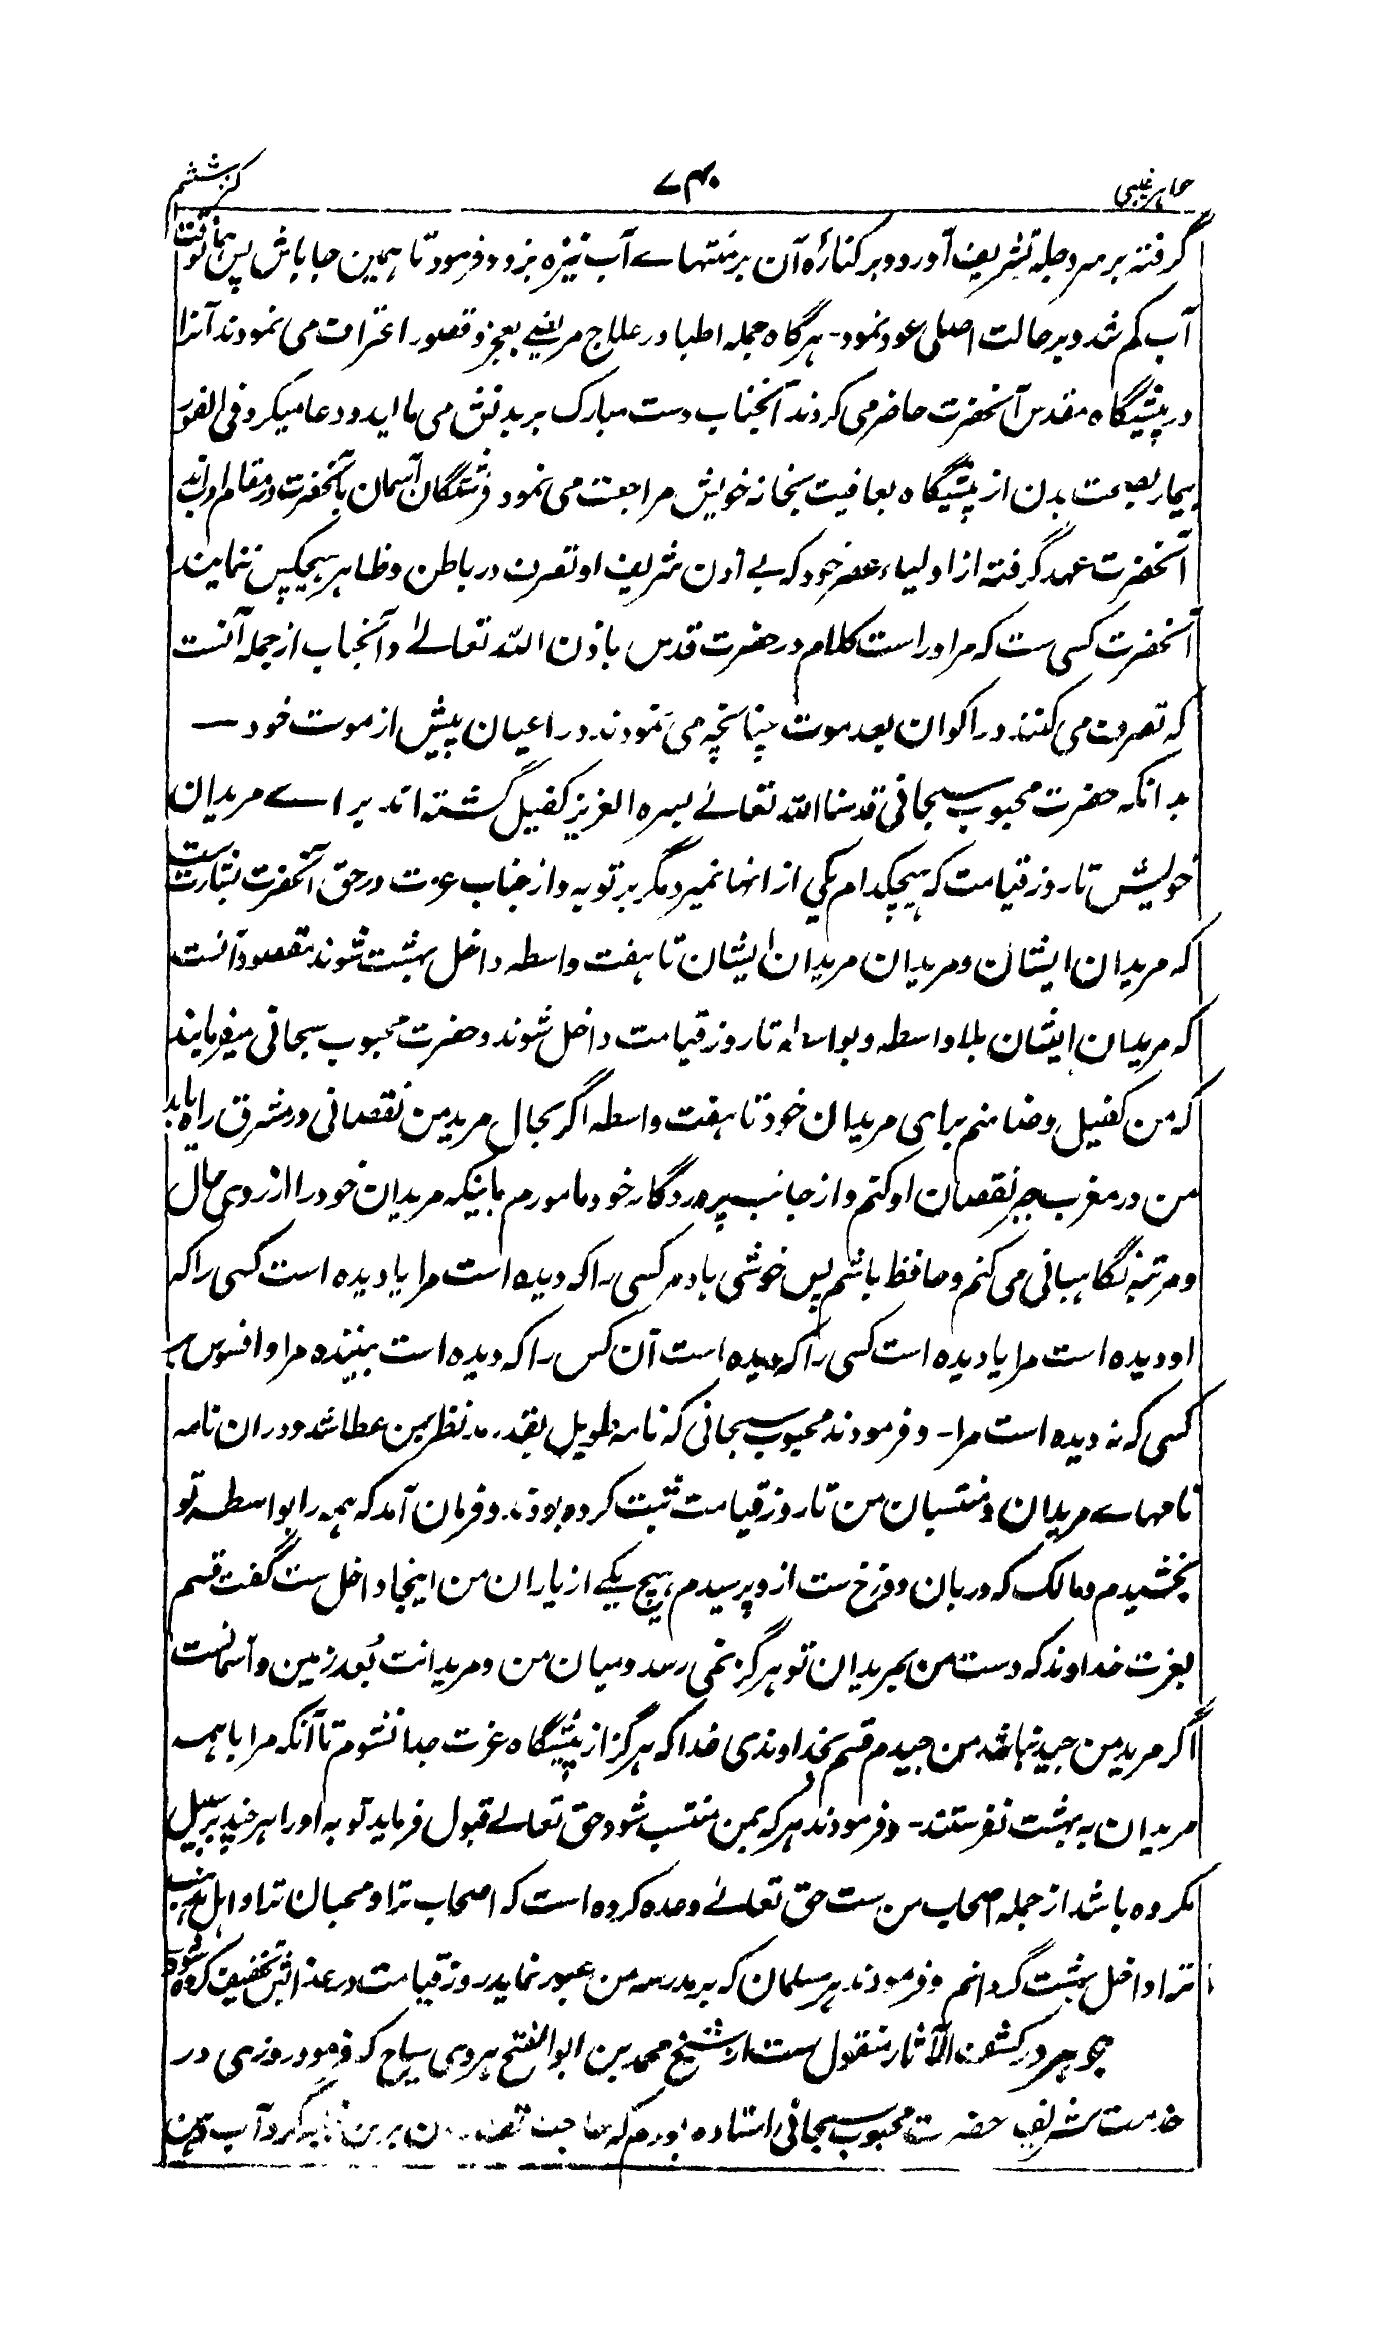 جواهر غیبی ۷۰۴ کنز ششم
گرفته بر سر دجله تشریف آورد و بر کنارهٔ آن بر منتهاے آب نیزه بزد و فرمود تا همین جا باش پس همانوقت
آب کم شد و بر حالت اصلی عود نمود۔ هرگاه جمله اطبا در علاج مریضے بعجز و قصور اعتراف می نمودند آنرا
در پیشگاه مقدس آنحضرت حاضر می کردند آنجناب دست مبارک بر بدنش می مالید و دعا میکرد فی الفور
بیمار بصحت بدن از پیشگاه بعافیت بخانه خویش مراجعت می نمود فرشتگان آسمان بآنحضرت در مقام ادب اند
آنحضرت عهد گرفته از اولیاء عصر خود که بے اذن شریف او تصرف در باطن و ظاهر هیچکس ننمایند
آنحضرت کسی ست که مر او راست کلام در حضرت قدس باذن الله تعالےٰ و آنجناب از جمله آنست
که تصرف می کنند در اکوان بعد موت چنانچه می نمودند در اعیان پیش از موت خود —
بدانکه حضرت محبوب سبحانی قدسنا الله تعالےٰ بسره العزیز کفیل گشته اند براے مریدان
خویش تا روز قیامت که هیچکدام یکی از انها نمیرد مگر بر توبه و از جناب عزت در حق آنحضرت بشارت ست
که مریدان ایشان و مریدان مریدان ایشان تا هفت واسطه داخل بهشت شوند مقصود آنست
که مریدان ایشان بلا واسطه و بواسطه تا روز قیامت داخل شوند و حضرت محبوب سبحانی میفرمایند
که من کفیل و ضامنم برای مریدان خود تا هفت واسطه اگر بحال مرید من نقصانی در مشرق راه یابد
من در مغرب جبر نقصان او کنم و از جانب پروردگار خود مامورم باینکه مریدان خود را از روی حال
و مرتبه نگاهبانی می کنم و حافظ باشم پس خوشی باد مر کسی را که دیده است مرا یا دیده است کسی را که
او دیده است مرا یا دیده است کسی را که دیده است آن کس را که دیده است بیننده مرا و افسوس بر
کسی که نه دیده است مرا۔ و فرمودند محبوب سبحانی که نامه طویل بقدر مد نظر بمن عطا شد و در ان نامه
نامهاے مریدان و منتسبان من تا روز قیامت ثبت کرده بودند و فرمان آمد که همه را بواسطه تو
بخشیدم و مالک که دربان دوزخ ست از و پرسیدم هیچ یکے از یاران من اینجا داخل ست گفت قسم
بعزت خداوند که دست من بمریدان تو هرگز نمی رسد و میان من و مریدانت بُعد زمین و آسمانست
اگر مرید من جید نباشد من جیدم قسم بخداوندی خدا که هرگز از پیشگاه عزت جدا نشوم تا آنکه مرا با همه
مریدان به بهشت نفرستند۔ و فرمودند هر که بمن منتسب شود حق تعالے قبول فرماید توبه او را هر چند بر سبیل
مکروه باشد از جمله اصحاب من ست حق تعالےٰ وعده کرده است که اصحاب ترا و محبان ترا و اهل مذهب
ترا داخل بهشت گردانم و فرمودند هر مسلمان که بر مدرسه من عبور نماید روز قیامت در عذابش تخفیف کرده شود
جوهر در کشف الآثار منقول ست از شیخ محمد بن ابو الفتح هروی سیاح که فرمود روزی در
خدمت شریف حضرت محبوب سبحانی استاده بودم که